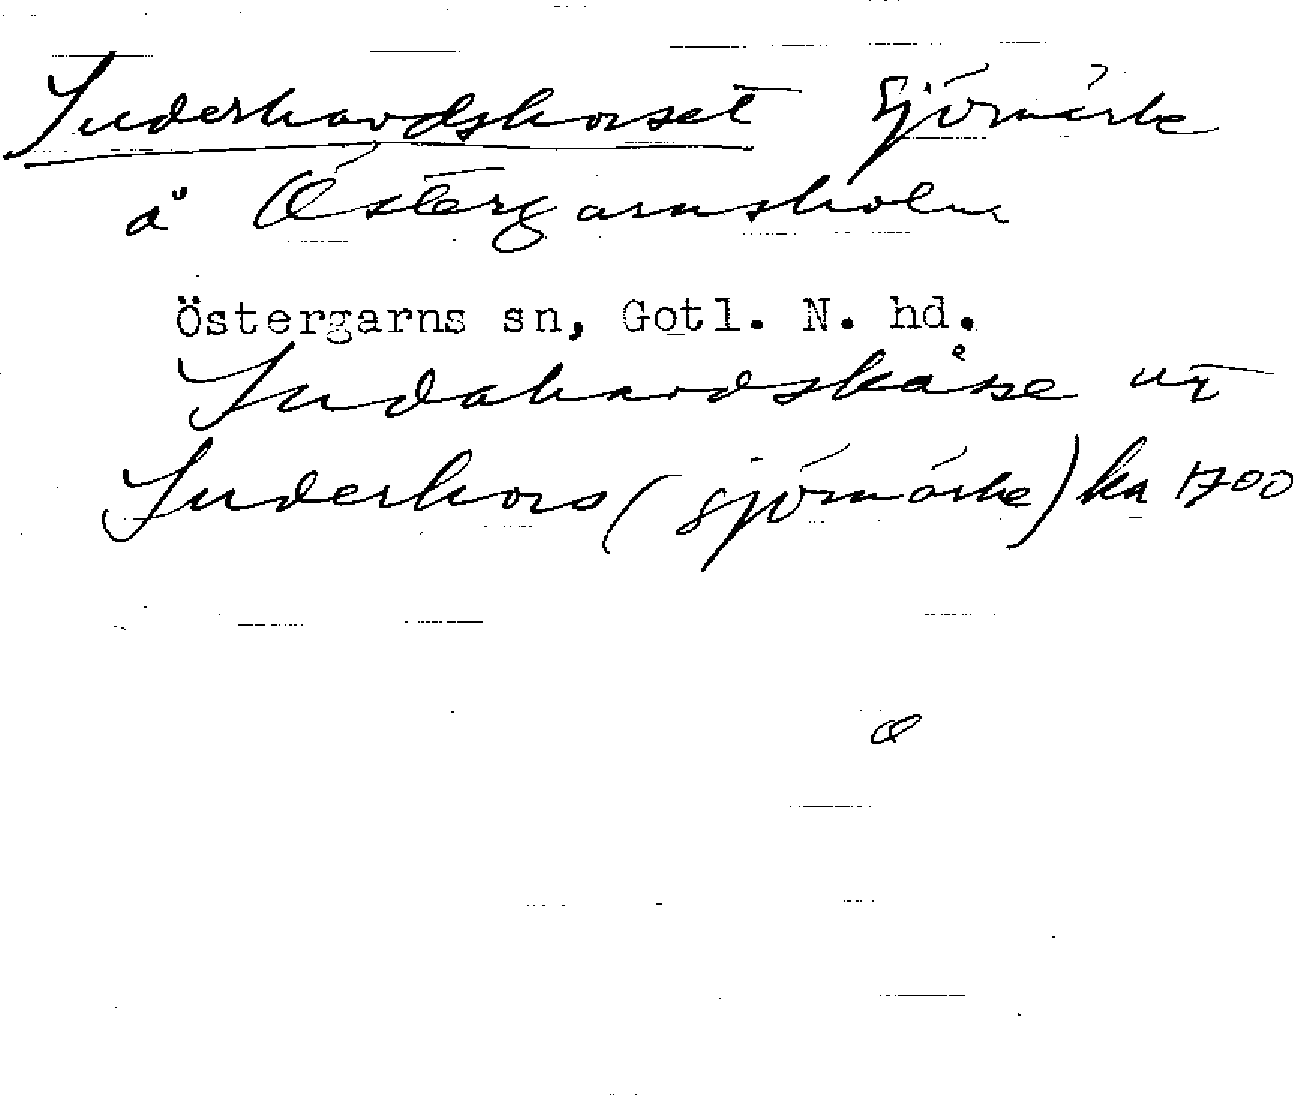 Suderhavdshorset sjömärke
å Östergarnsholm
Östergarns sn, Gotl. N. hd.
Sudahavdskåse
Suderhors (sjömärke) ka 1700